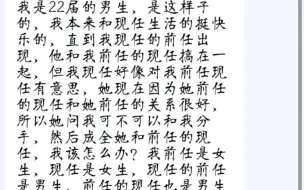 我是22届的男生，是这样子
的，我本来和现任生活的挺快
乐的，直到我现任的前任出
现，他和我前任的现任搞在一
起，但我现任好像对我前任现
任有意思，她现在因为她前任
的现任和她前任的关系很好，
所以她问我可不可以和我分
手，然后成全她和前任的现
任，我该怎么办？我前任是女
生，现任是女生，现任的前任
是男生，前任的现任也是男生